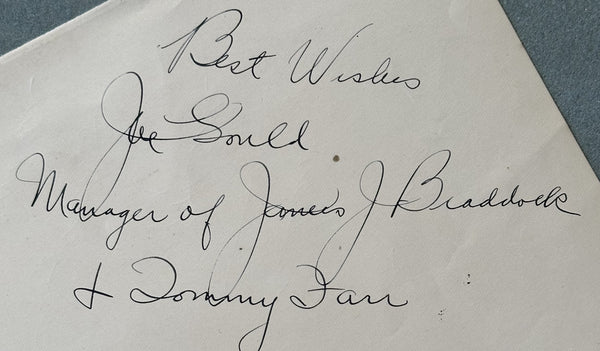 Best Wishes
Joe Gould
Manager of James J Braddock
& Tommy Farr